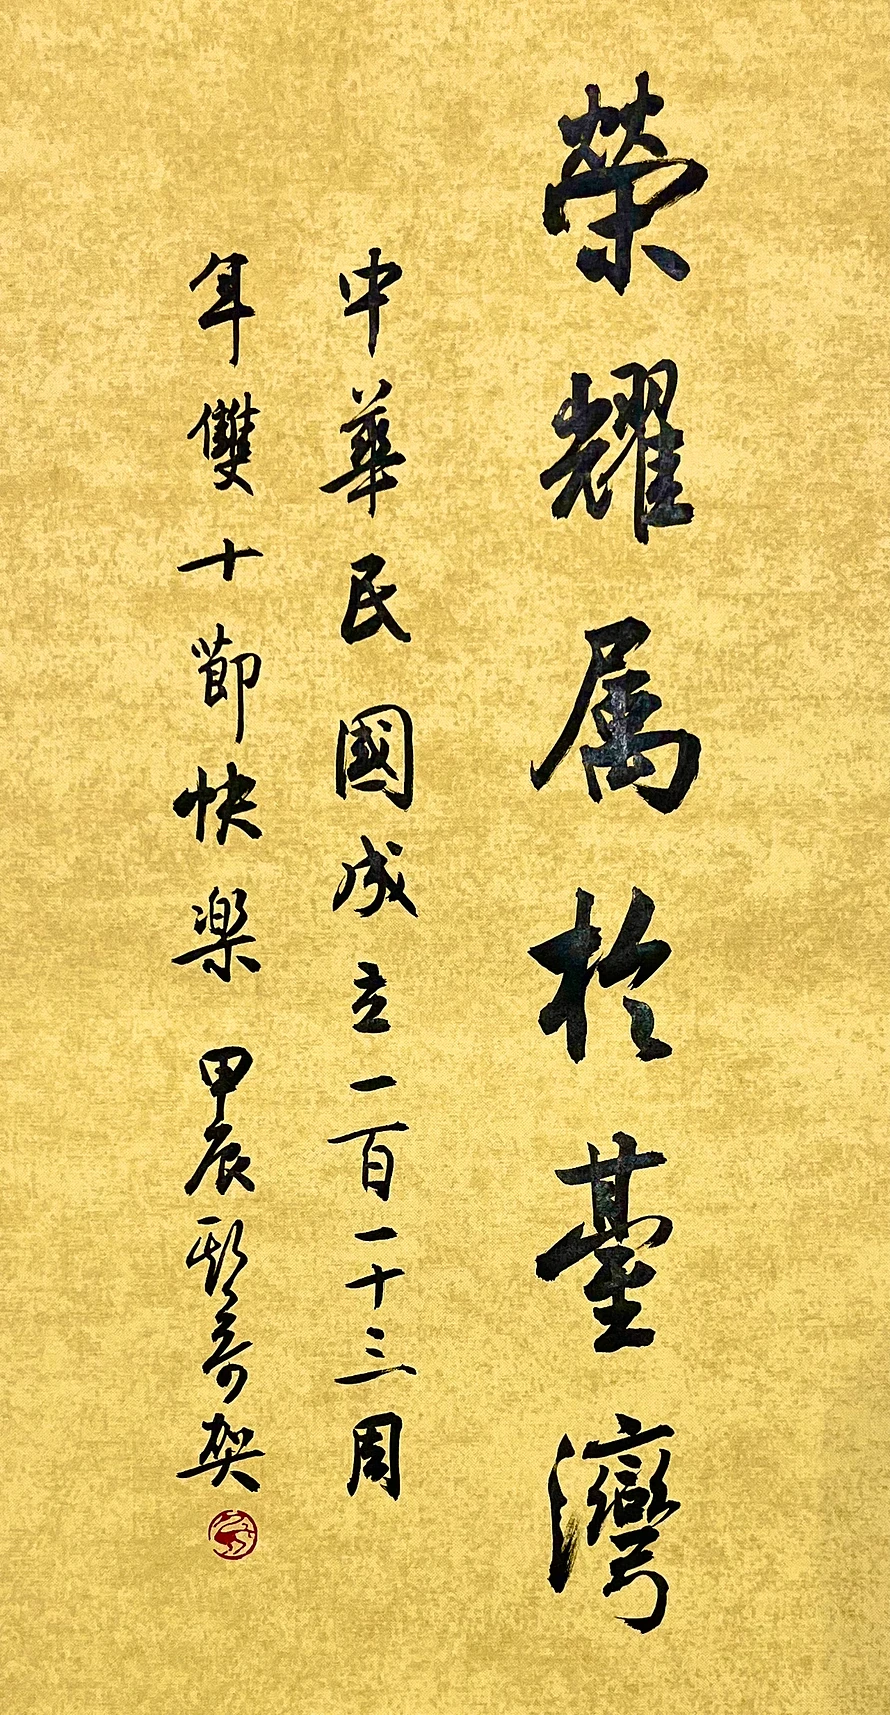 榮耀属於臺灣
中華民國成立一百一十三周
年雙十節快樂 甲辰